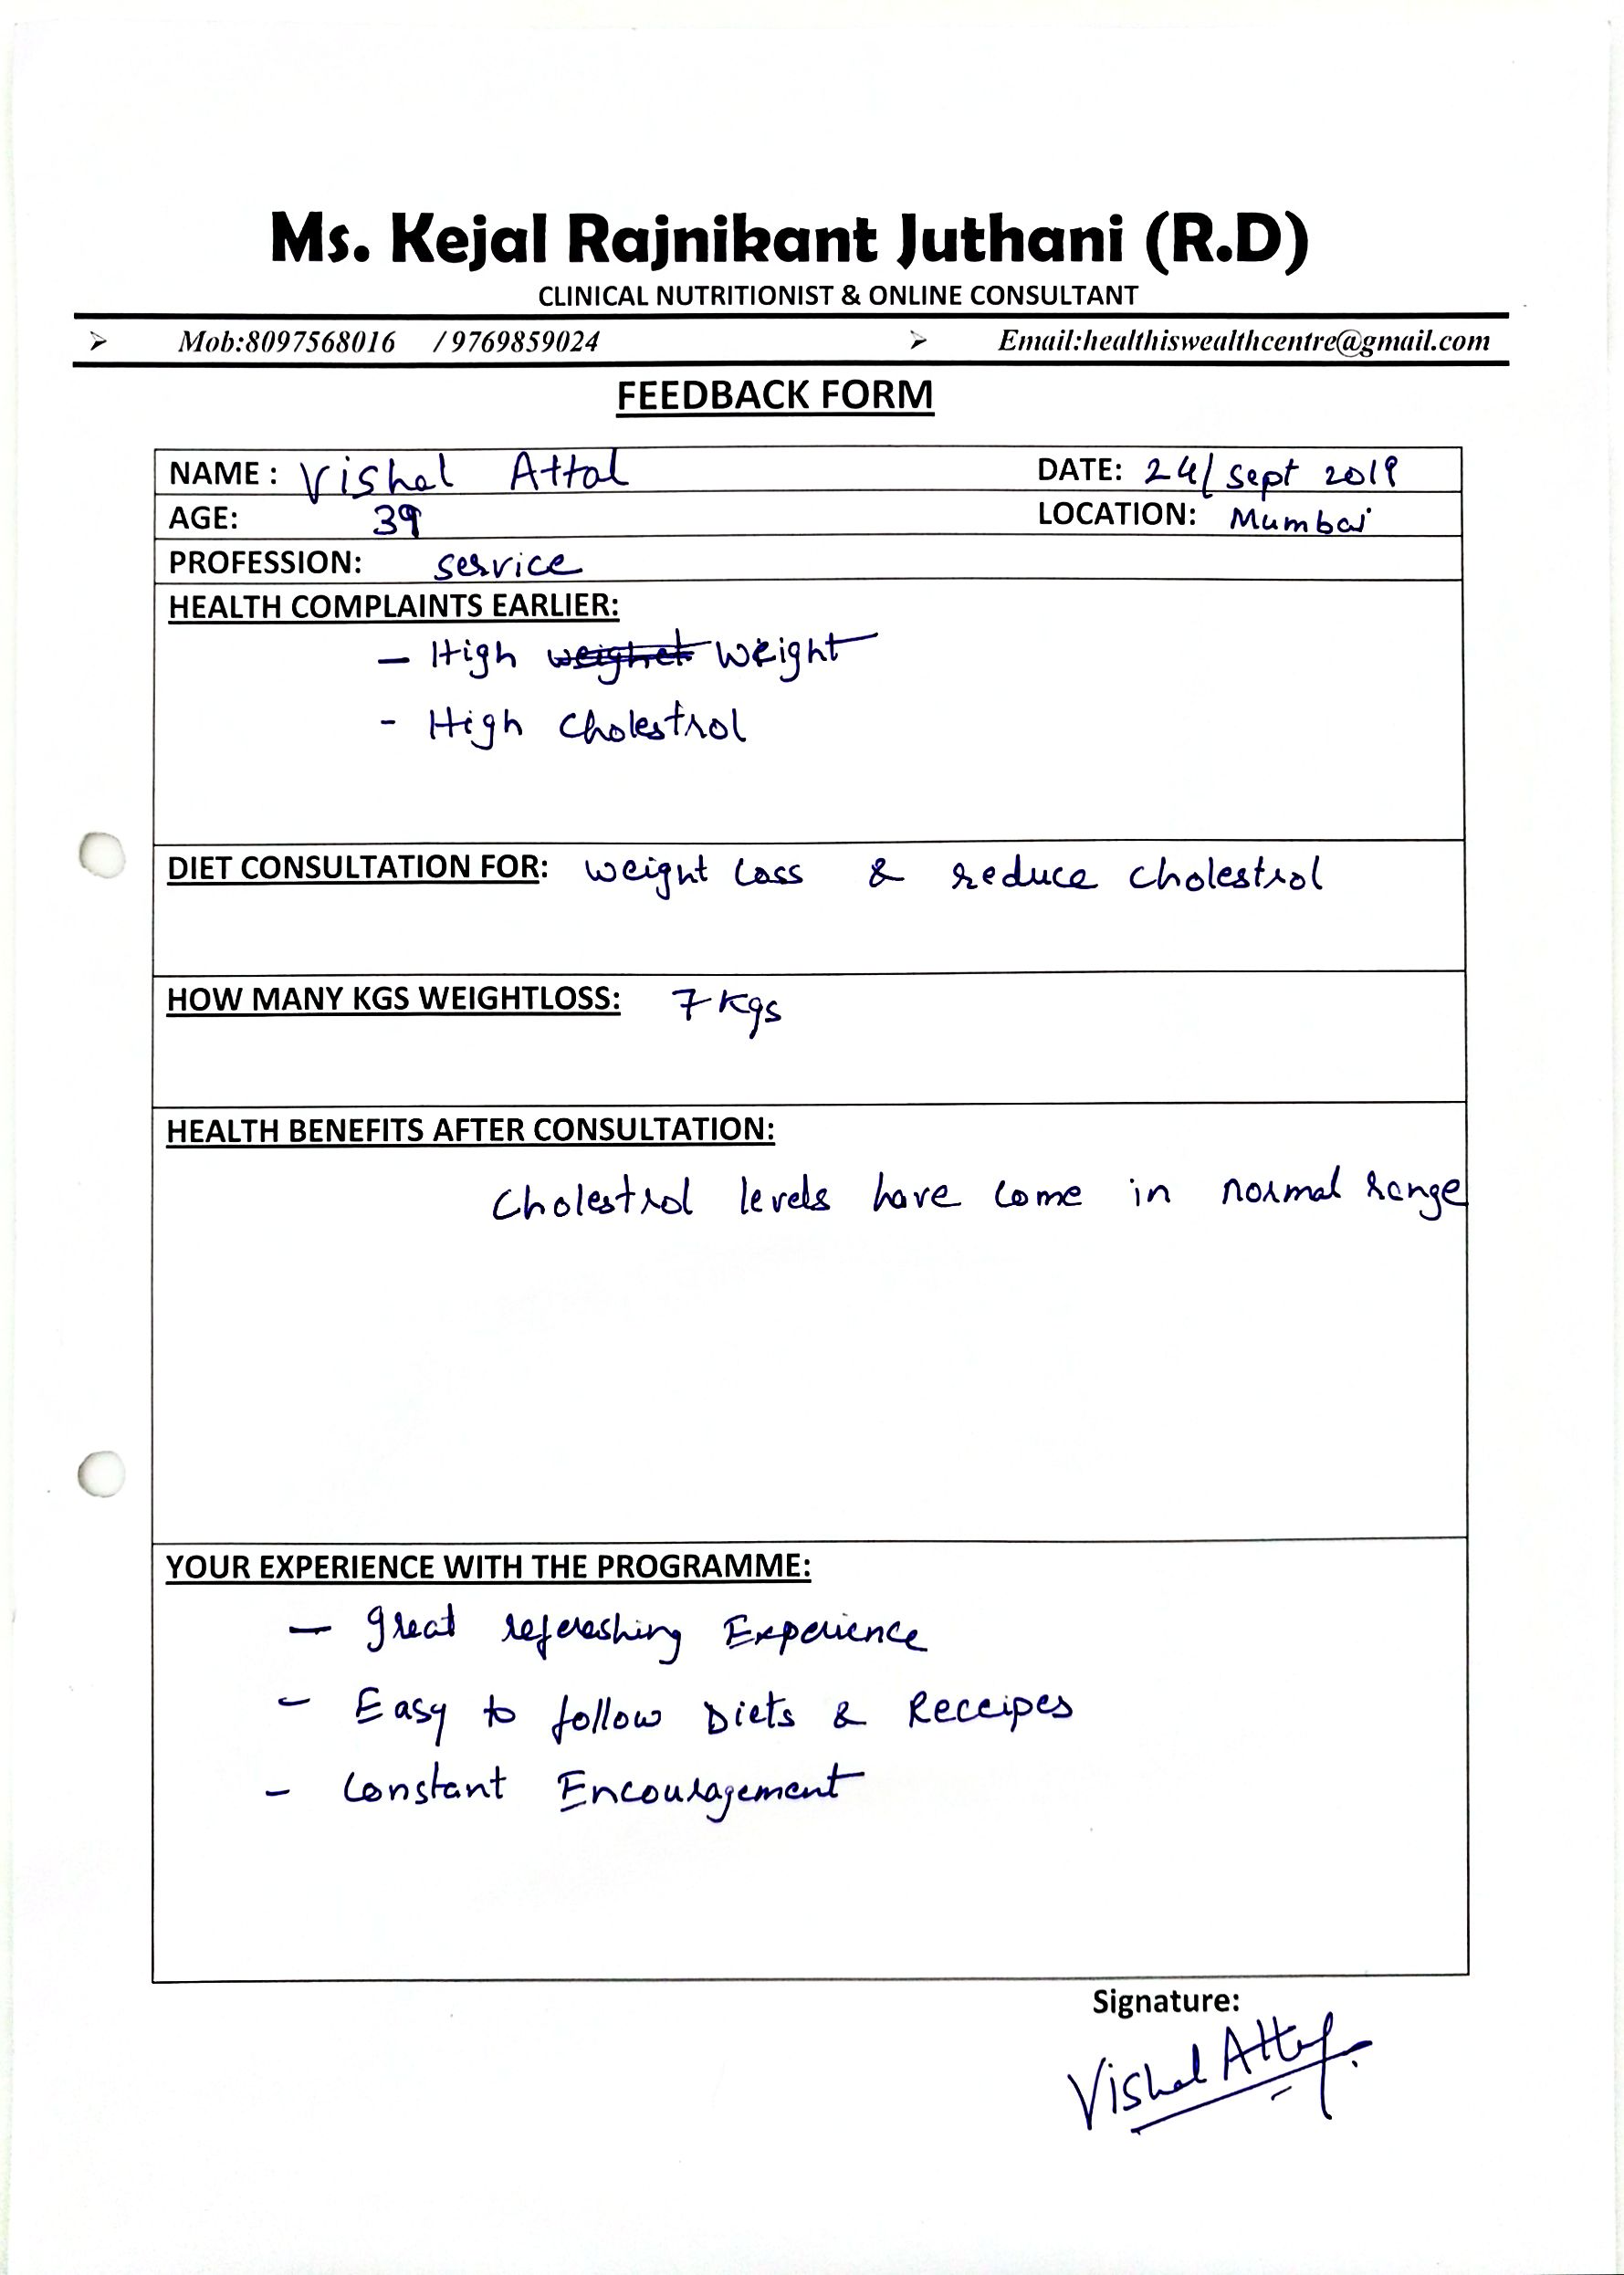 Ms. Kejal Rajnikant Juthani (R.D)
CLINICAL NUTRITIONIST & ONLINE CONSULTANT
➢ Mob:8097568016 / 9769859024 ➢ Email:healthiswealthcentre@gmail.com
FEEDBACK FORM
NAME : Vishal Attal DATE: 24/ Sept 2019
AGE: 39 LOCATION: Mumbai
PROFESSION: service
HEALTH COMPLAINTS EARLIER:
– High weighet Weight
- High Cholestrol
DIET CONSULTATION FOR: weight loss & reduce cholestrol
HOW MANY KGS WEIGHTLOSS: 7 Kgs
HEALTH BENEFITS AFTER CONSULTATION:
Cholestrol levels have come in normal range
YOUR EXPERIENCE WITH THE PROGRAMME:
– great refereshing Experience
- Easy to follow Diets & Receipes
- Constant Encouragement
Signature:
Vishal Attal